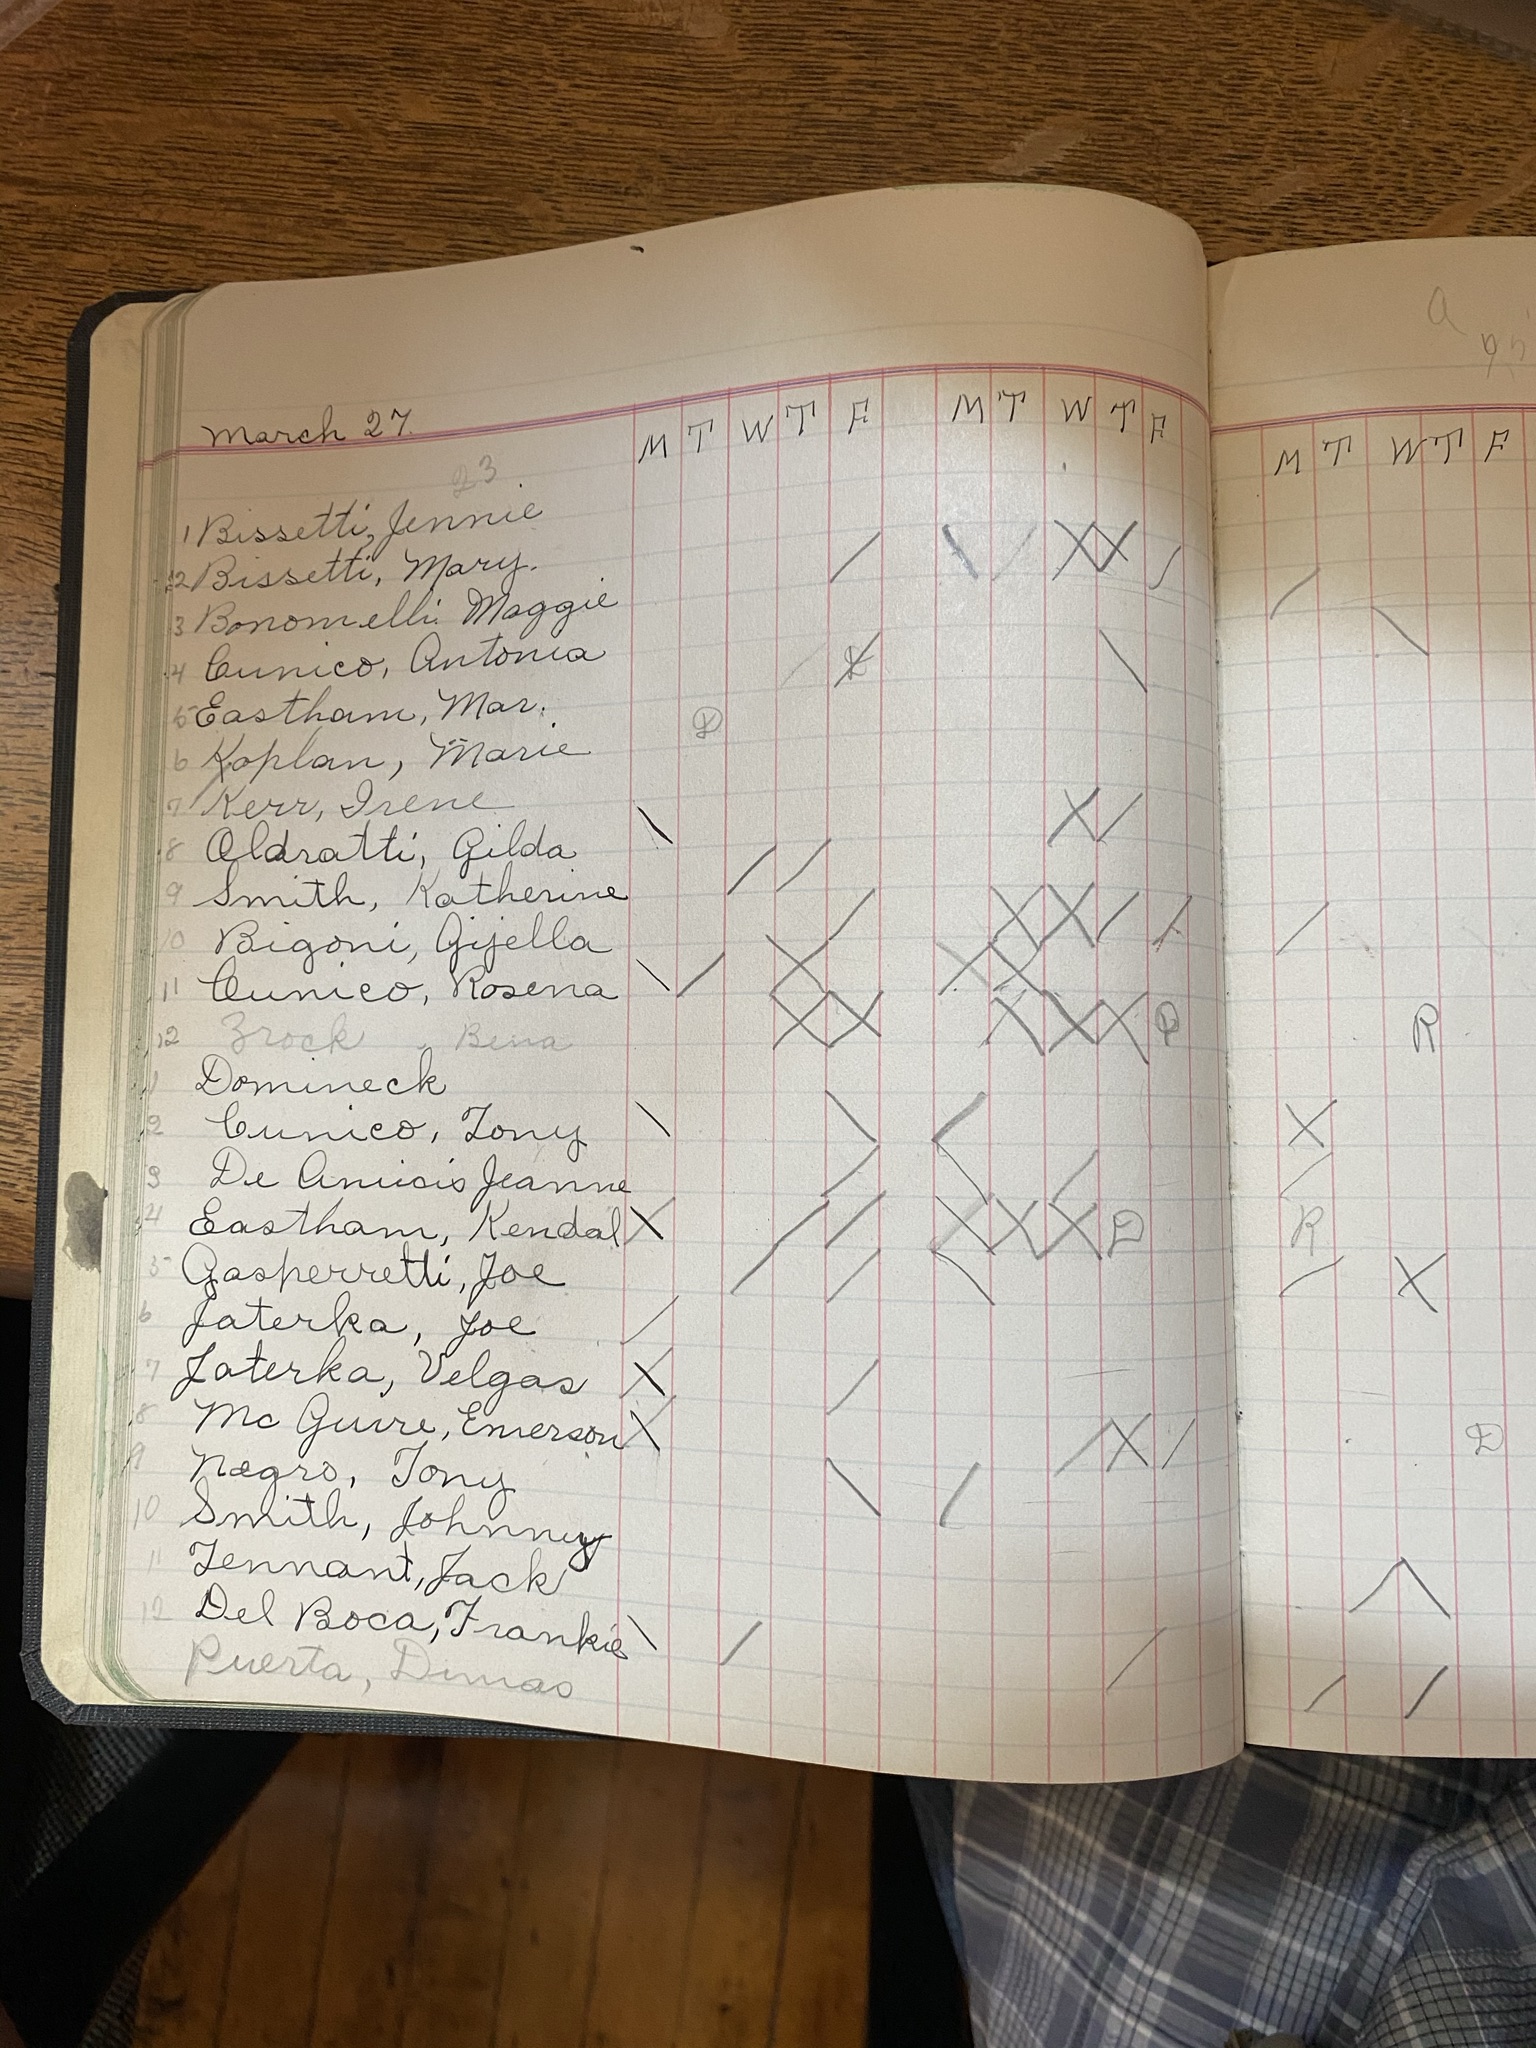 March 27.
M T W T F M T W T F
M T W T F
23
1 Bissetti, Jennie
2 Bissetti, Mary.
3 Bonomelli Maggie
4 Cunico, Antonia
5 Eastham, Mar.
6 Koplan, Marie
7 Kerr, Irene
8 Aldratti, Gilda
9 Smith, Katherine
10 Bigoni, Gijella
11 Cunico, Rosena
12 Zrock Bena
1 Domineck
2 Cunico, Tony
3 De Amicis Jeanne
4 Eastham, Kendal
5 Gasperretti, Joe
6 Jaterka, Joe
7 Jaterka, Velgas
8 Mc Guire, Emerson
9 Negro, Tony
10 Smith, Johnney
11 Tennant, Jack
12 Del Boca, Frankie
Puerta, Dimas